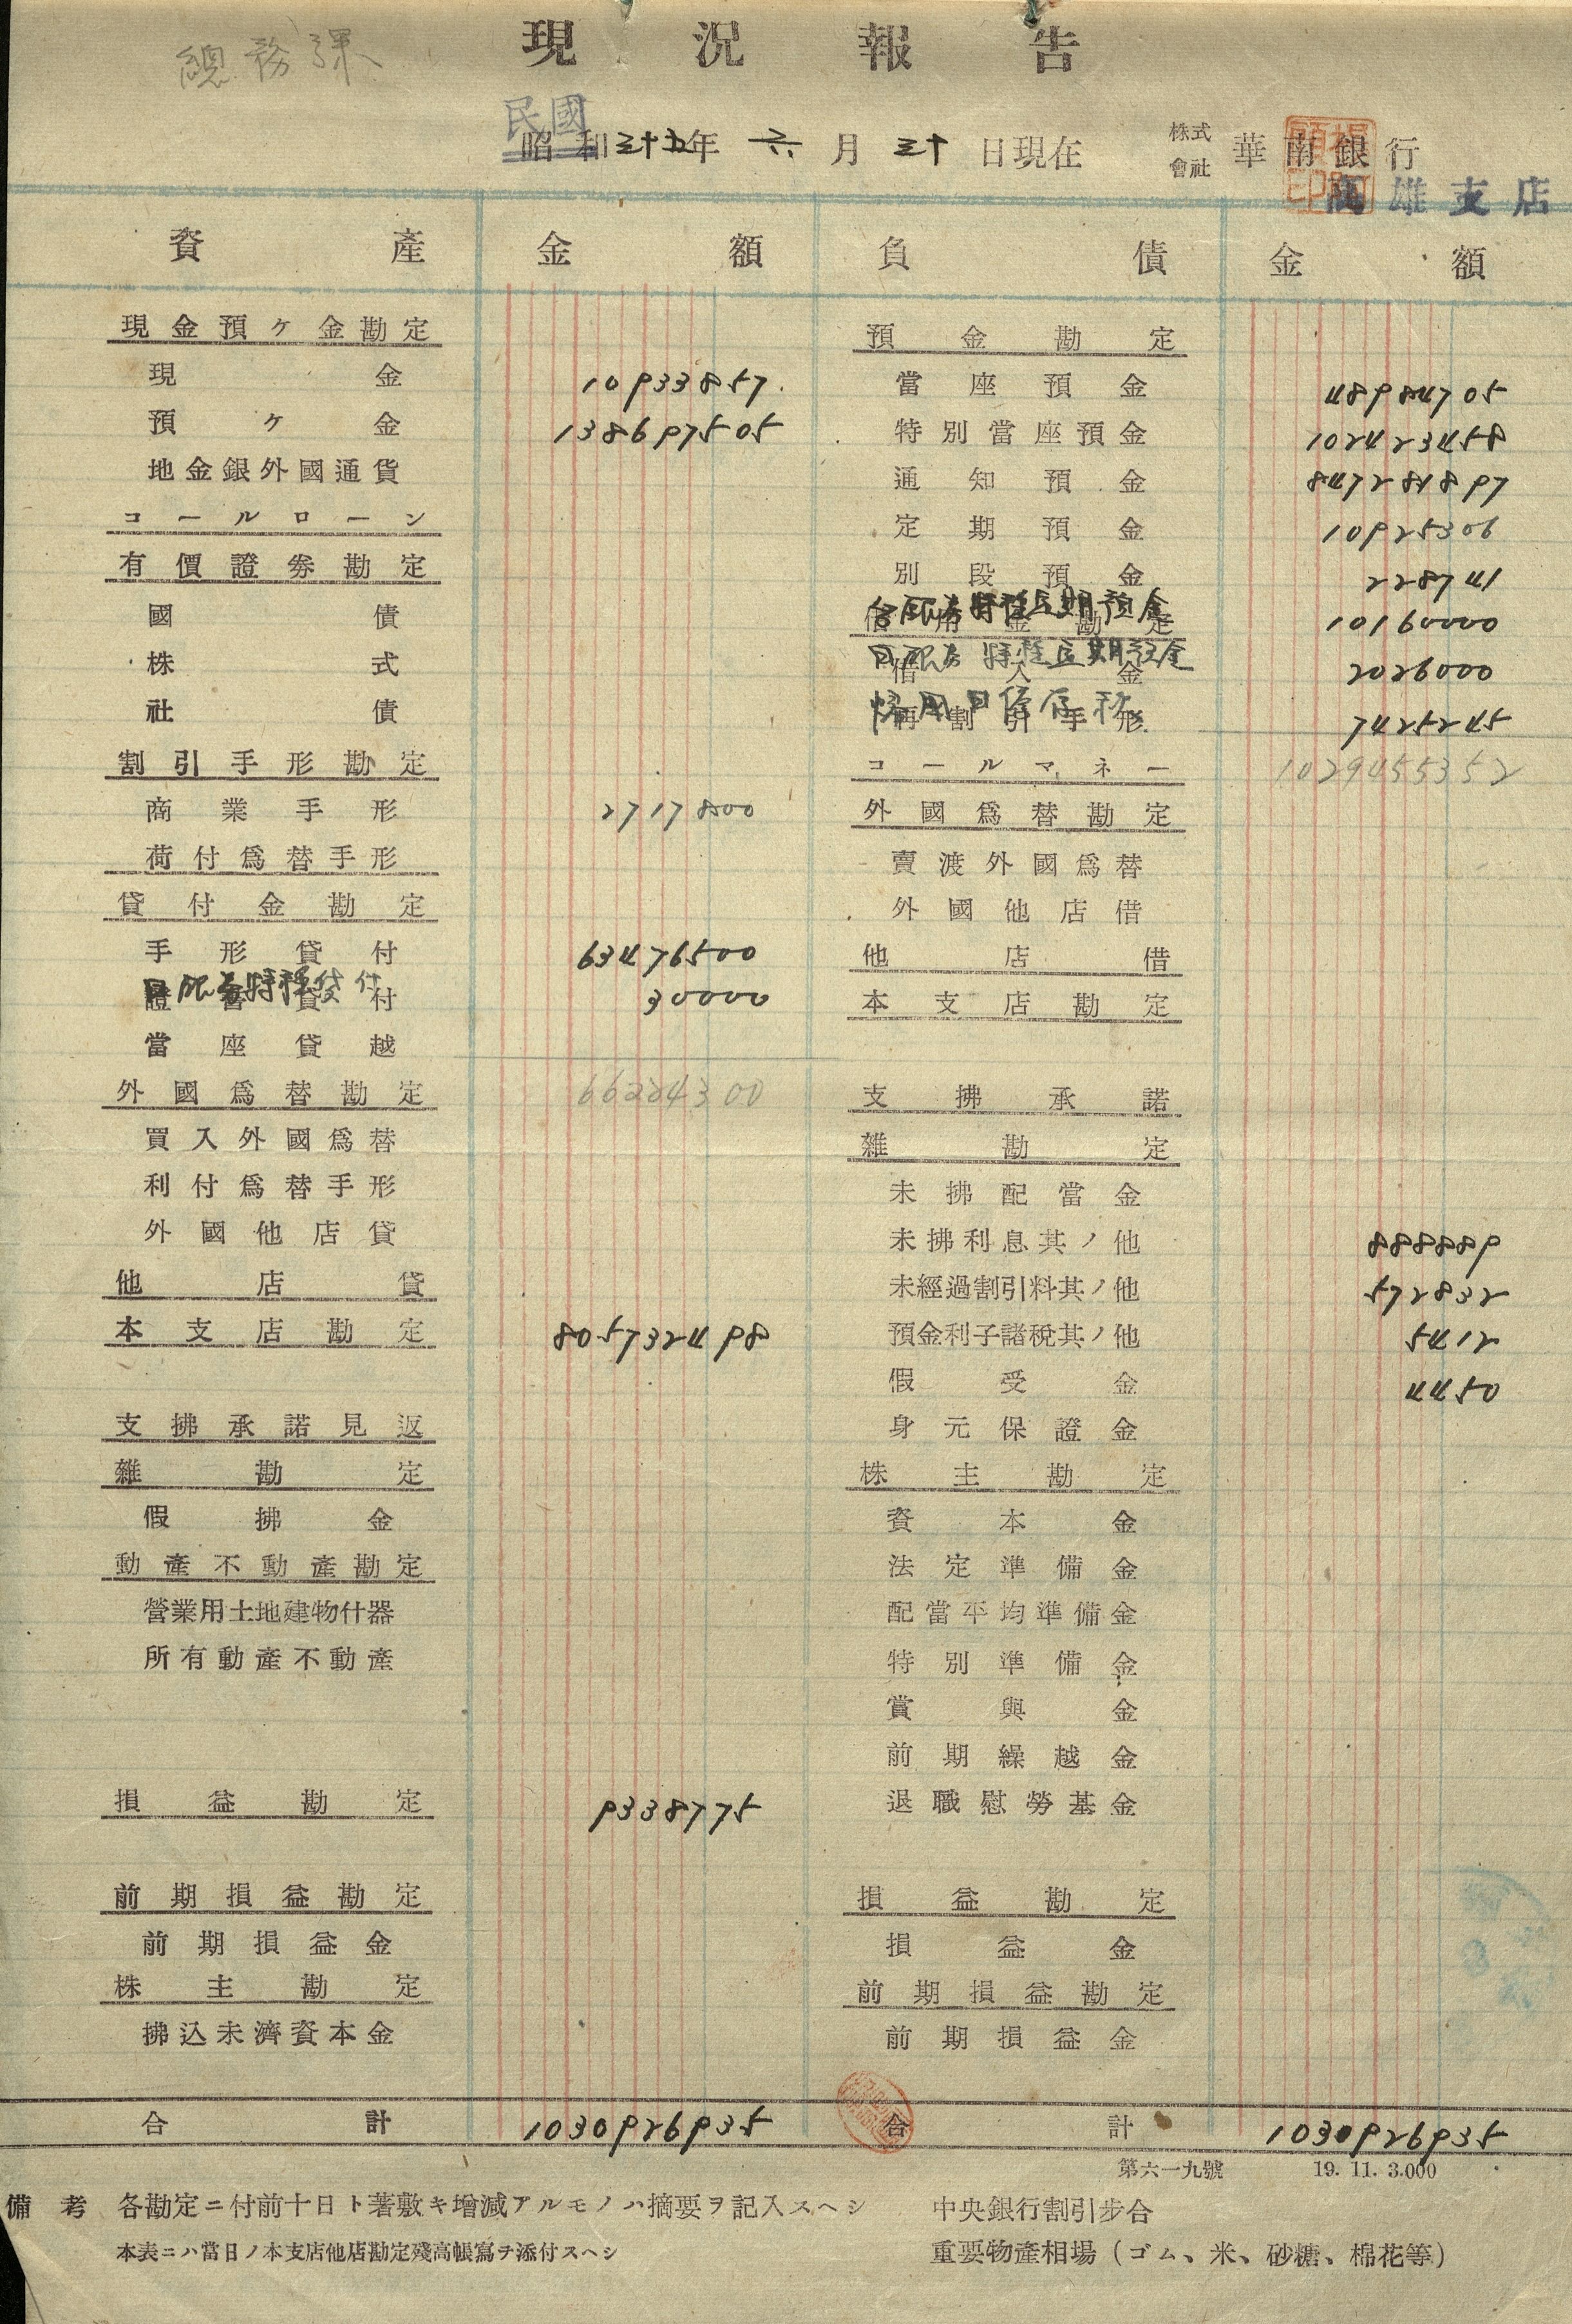 總務課
現況報告
民國
昭和三十五年 六月 三十日現在
株式會社 華南銀行
高雄支店
資產 金額 負債 金額
現金預ケ金勘定
現金 10933857
預ケ金 138697505
地金銀外國通貨
コールローン
有價證券勘定
國債
株式
社債
割引手形勘定
商業手形 2717800
荷付爲替手形
貸付金勘定
手形貸付 63476500
證書貸付 30000
當座貸越
外國爲替勘定 66224300
買入外國爲替
利付爲替手形
外國他店貸
他店貸
本支店勘定 805732498
支拂承諾見返
雜勘定
假拂金
動產不動產勘定
營業用土地建物什器
所有動產不動產
損益勘定 9338775
前期損益勘定
前期損益金
株主勘定
拂込未濟資本金
合計 1030926935
預金勘定
當座預金 48984705
特別當座預金 102423458
通知預金 847281897
定期預金 10925306
別段預金 228741
特種定期預金
借用金勘定 10160000
特種定期預金
借入金 2026000
再割引手形 7425245
コールマネー 1029455352
外國爲替勘定
賣渡外國爲替
外國他店借
他店借
本支店勘定
支拂承諾
雜勘定
未拂配當金
未拂利息其ノ他 888889
未經過割引料其ノ他 572832
預金利子諸稅其ノ他 5412
假受金 4450
身元保證金
株主勘定
資本金
法定準備金
配當平均準備金
特別準備金
賞與金
前期繰越金
退職慰勞基金
損益勘定
損益金
前期損益勘定
前期損益金
合計 1030926935
第六一九號 19. 11. 3.000
備考 各勘定ニ付前十日ト著敷キ增減アルモノハ摘要ヲ記入スヘシ
本表ニハ當日ノ本支店他店勘定殘高帳寫ヲ添付スヘシ
中央銀行割引步合
重要物產相場（ゴム、米、砂糖、棉花等）